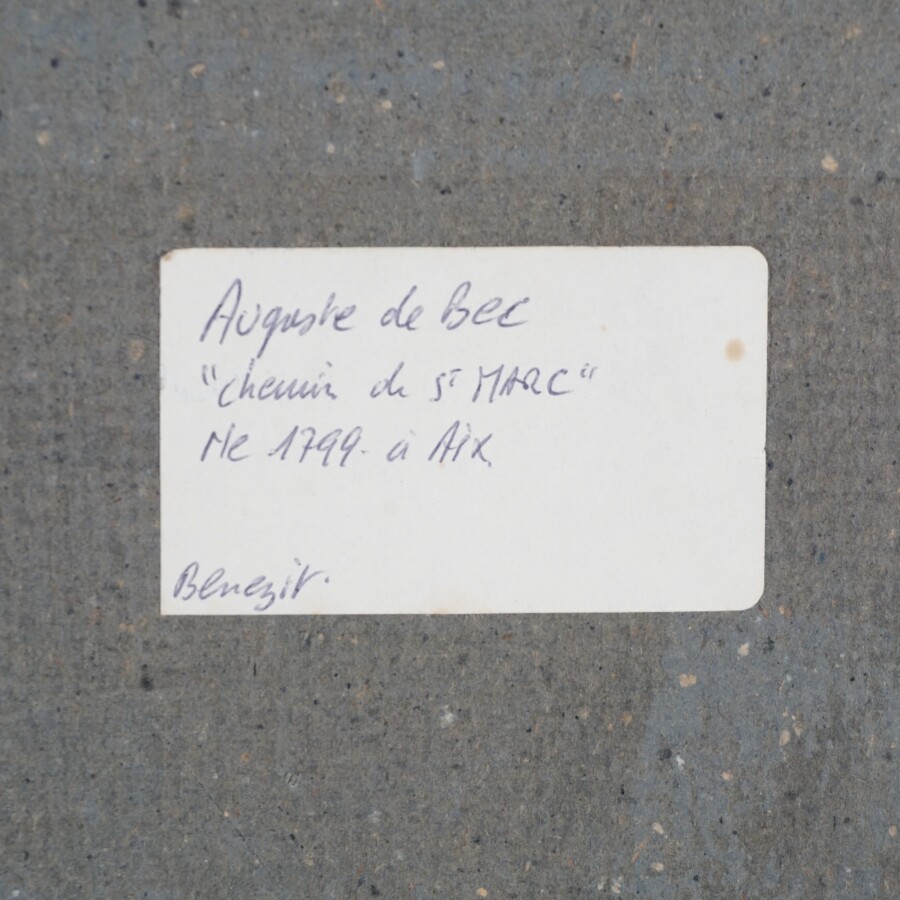 Auguste de Bec
"chemin de St MARC"
Né 1799. à Aix.
Benezit.